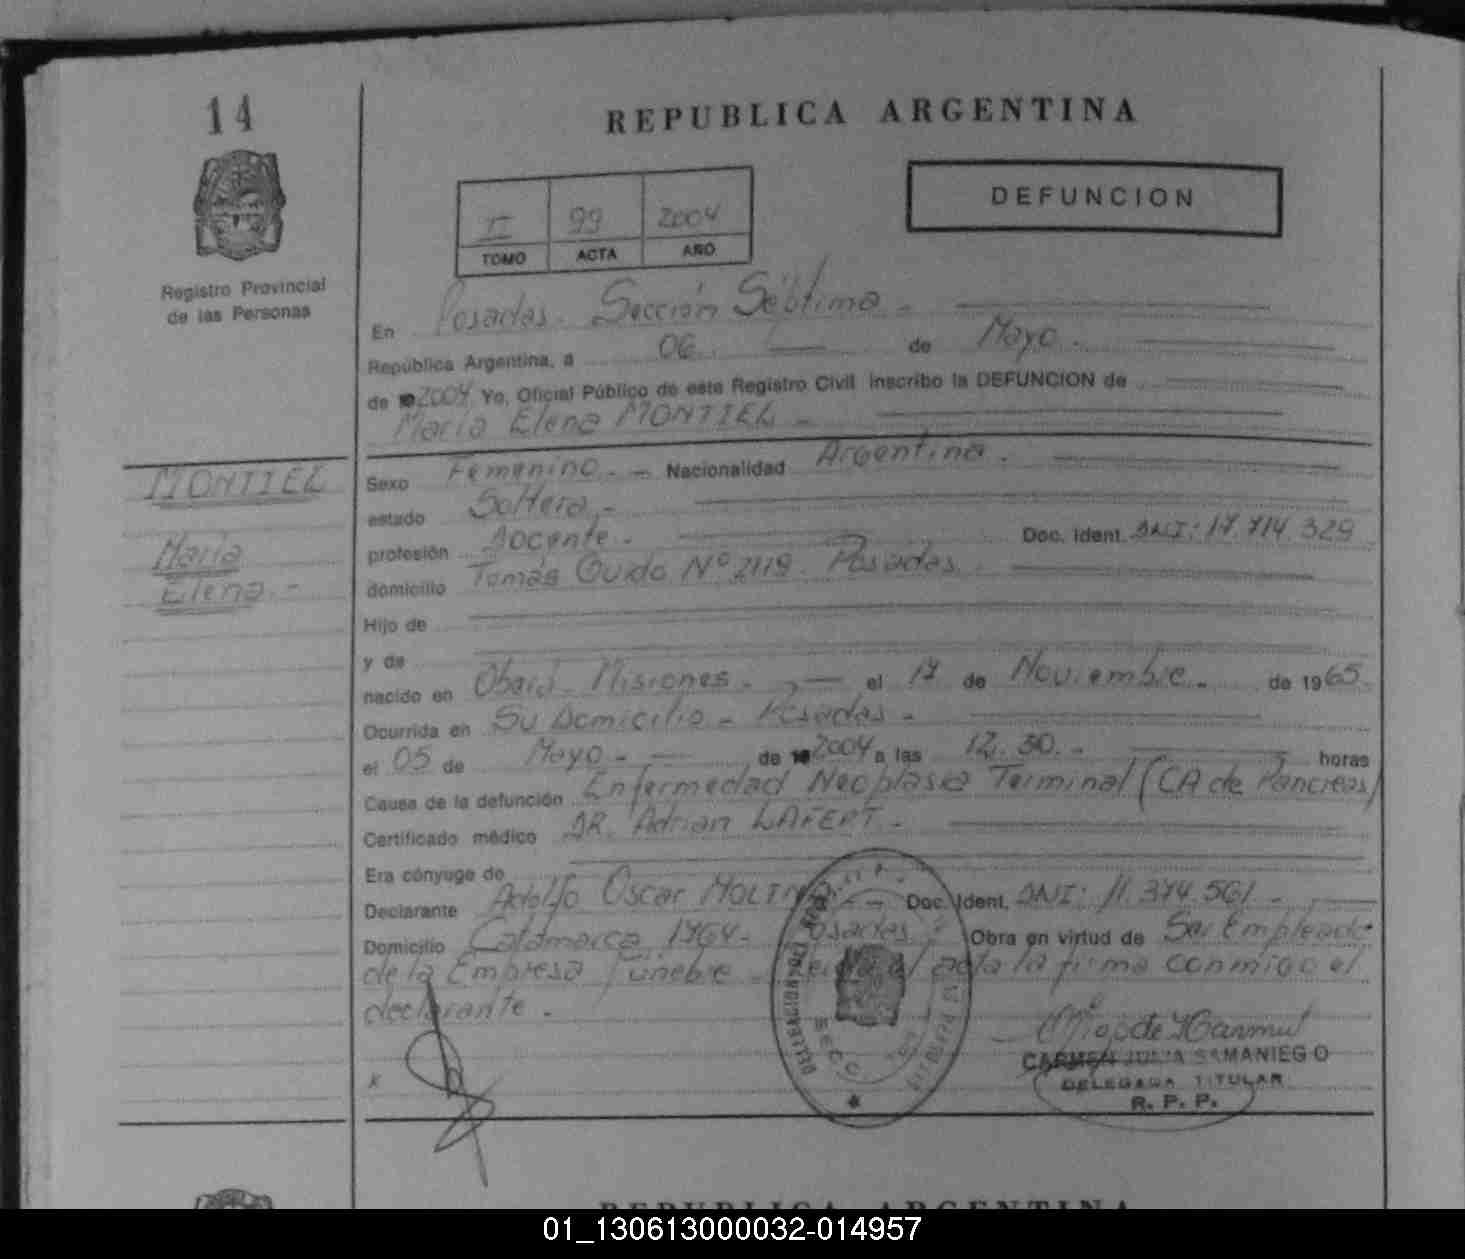 14
REPUBLICA ARGENTINA
DEFUNCION
II 99 2004
TOMO ACTA AÑO
Registro Provincial
de las Personas
En Posadas. Sección Séptima.-
República Argentina, a 06. de Mayo.
de 2004 Yo, Oficial Público de este Registro Civil inscribo la DEFUNCION de
María Elena MONTIEL -
MONTIEL
María
Elena.-
Sexo Femenino.- Nacionalidad Argentina.
estado Soltera.-
profesión Docente. Doc. Ident. DNI: 17.714.329
domicilio Tomás Guido Nº 2119. Posadas.
Hijo de
y de
nacido en Oberá - Misiones. el 17 de Noviembre.- de 1965.
Ocurrida en Su Domicilio - Posadas -
el 05 de Mayo.- de 2004 a las 12.30.- horas
Causa de la defunción Enfermedad Neoplasia Terminal (CA de Pancreas)
Certificado médico DR. Adrian LAFERT.-
Era cónyuge de
Declarante Adolfo Oscar MOLINA.- Doc. Ident. DNI: 11.374.561.-
Domicilio Catamarca 1764- Posadas Obra en virtud de Ser Empleado
de la Empresa Fúnebre - Leida el acta la firma conmigo el
declarante.
x
CARMEN JULIA SAMANIEGO
DELEGADA TITULAR
R. P. P.
REPUBLICA ARGENTINA
01_130613000032-014957